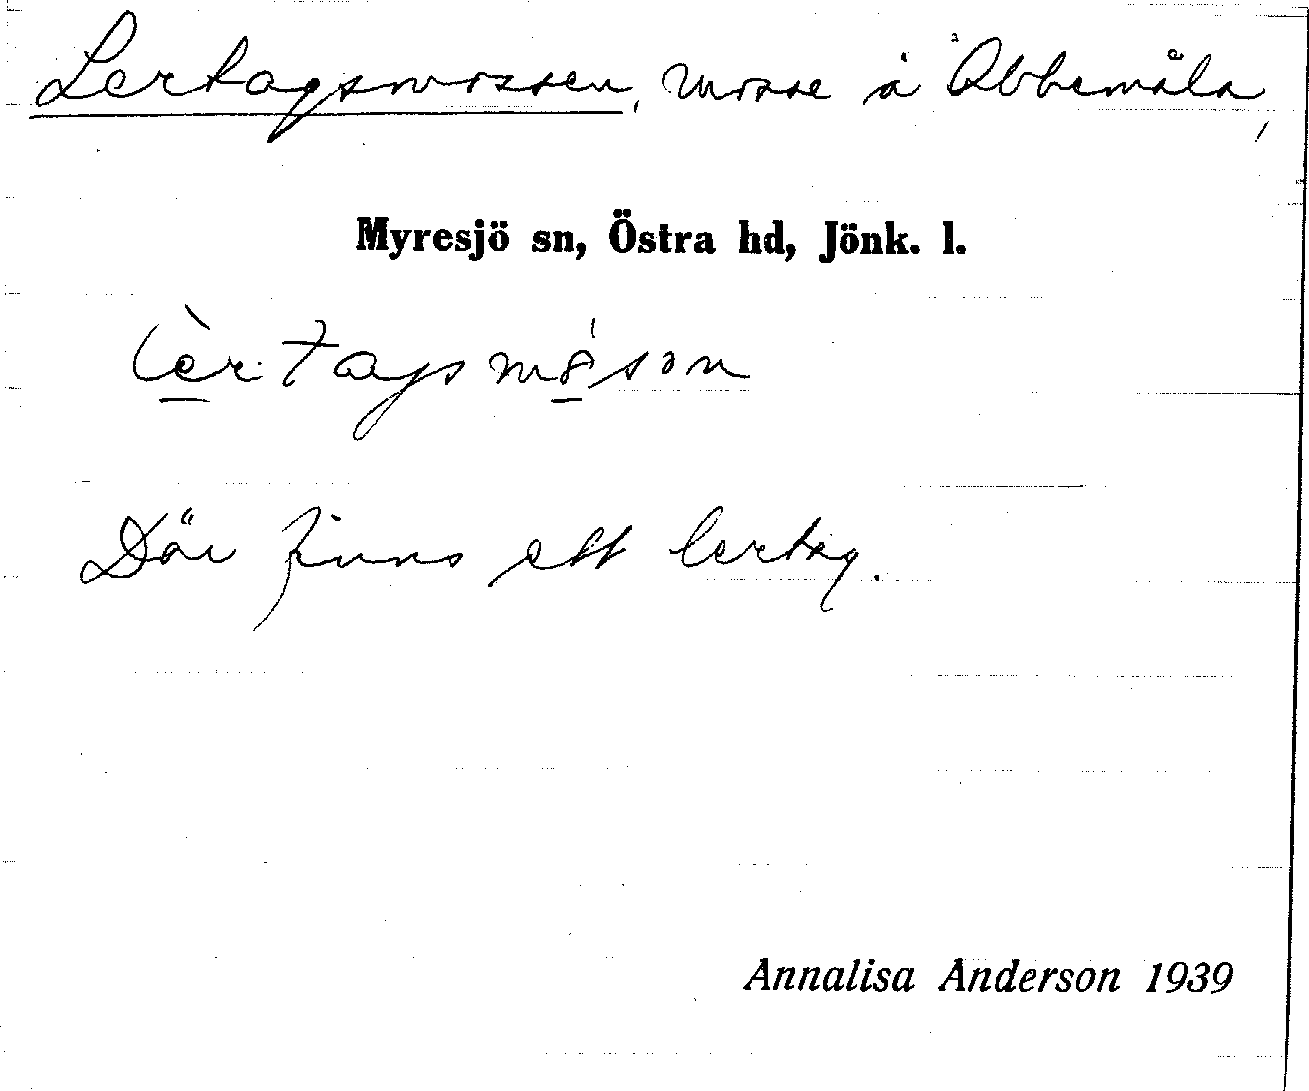 Lertagsmossen, mosse å Abbemåla,
Myresjö sn, Östra hd, Jönk. l.
lèrtagsmósən
Där finns ett lertag.
Annalisa Anderson 1939